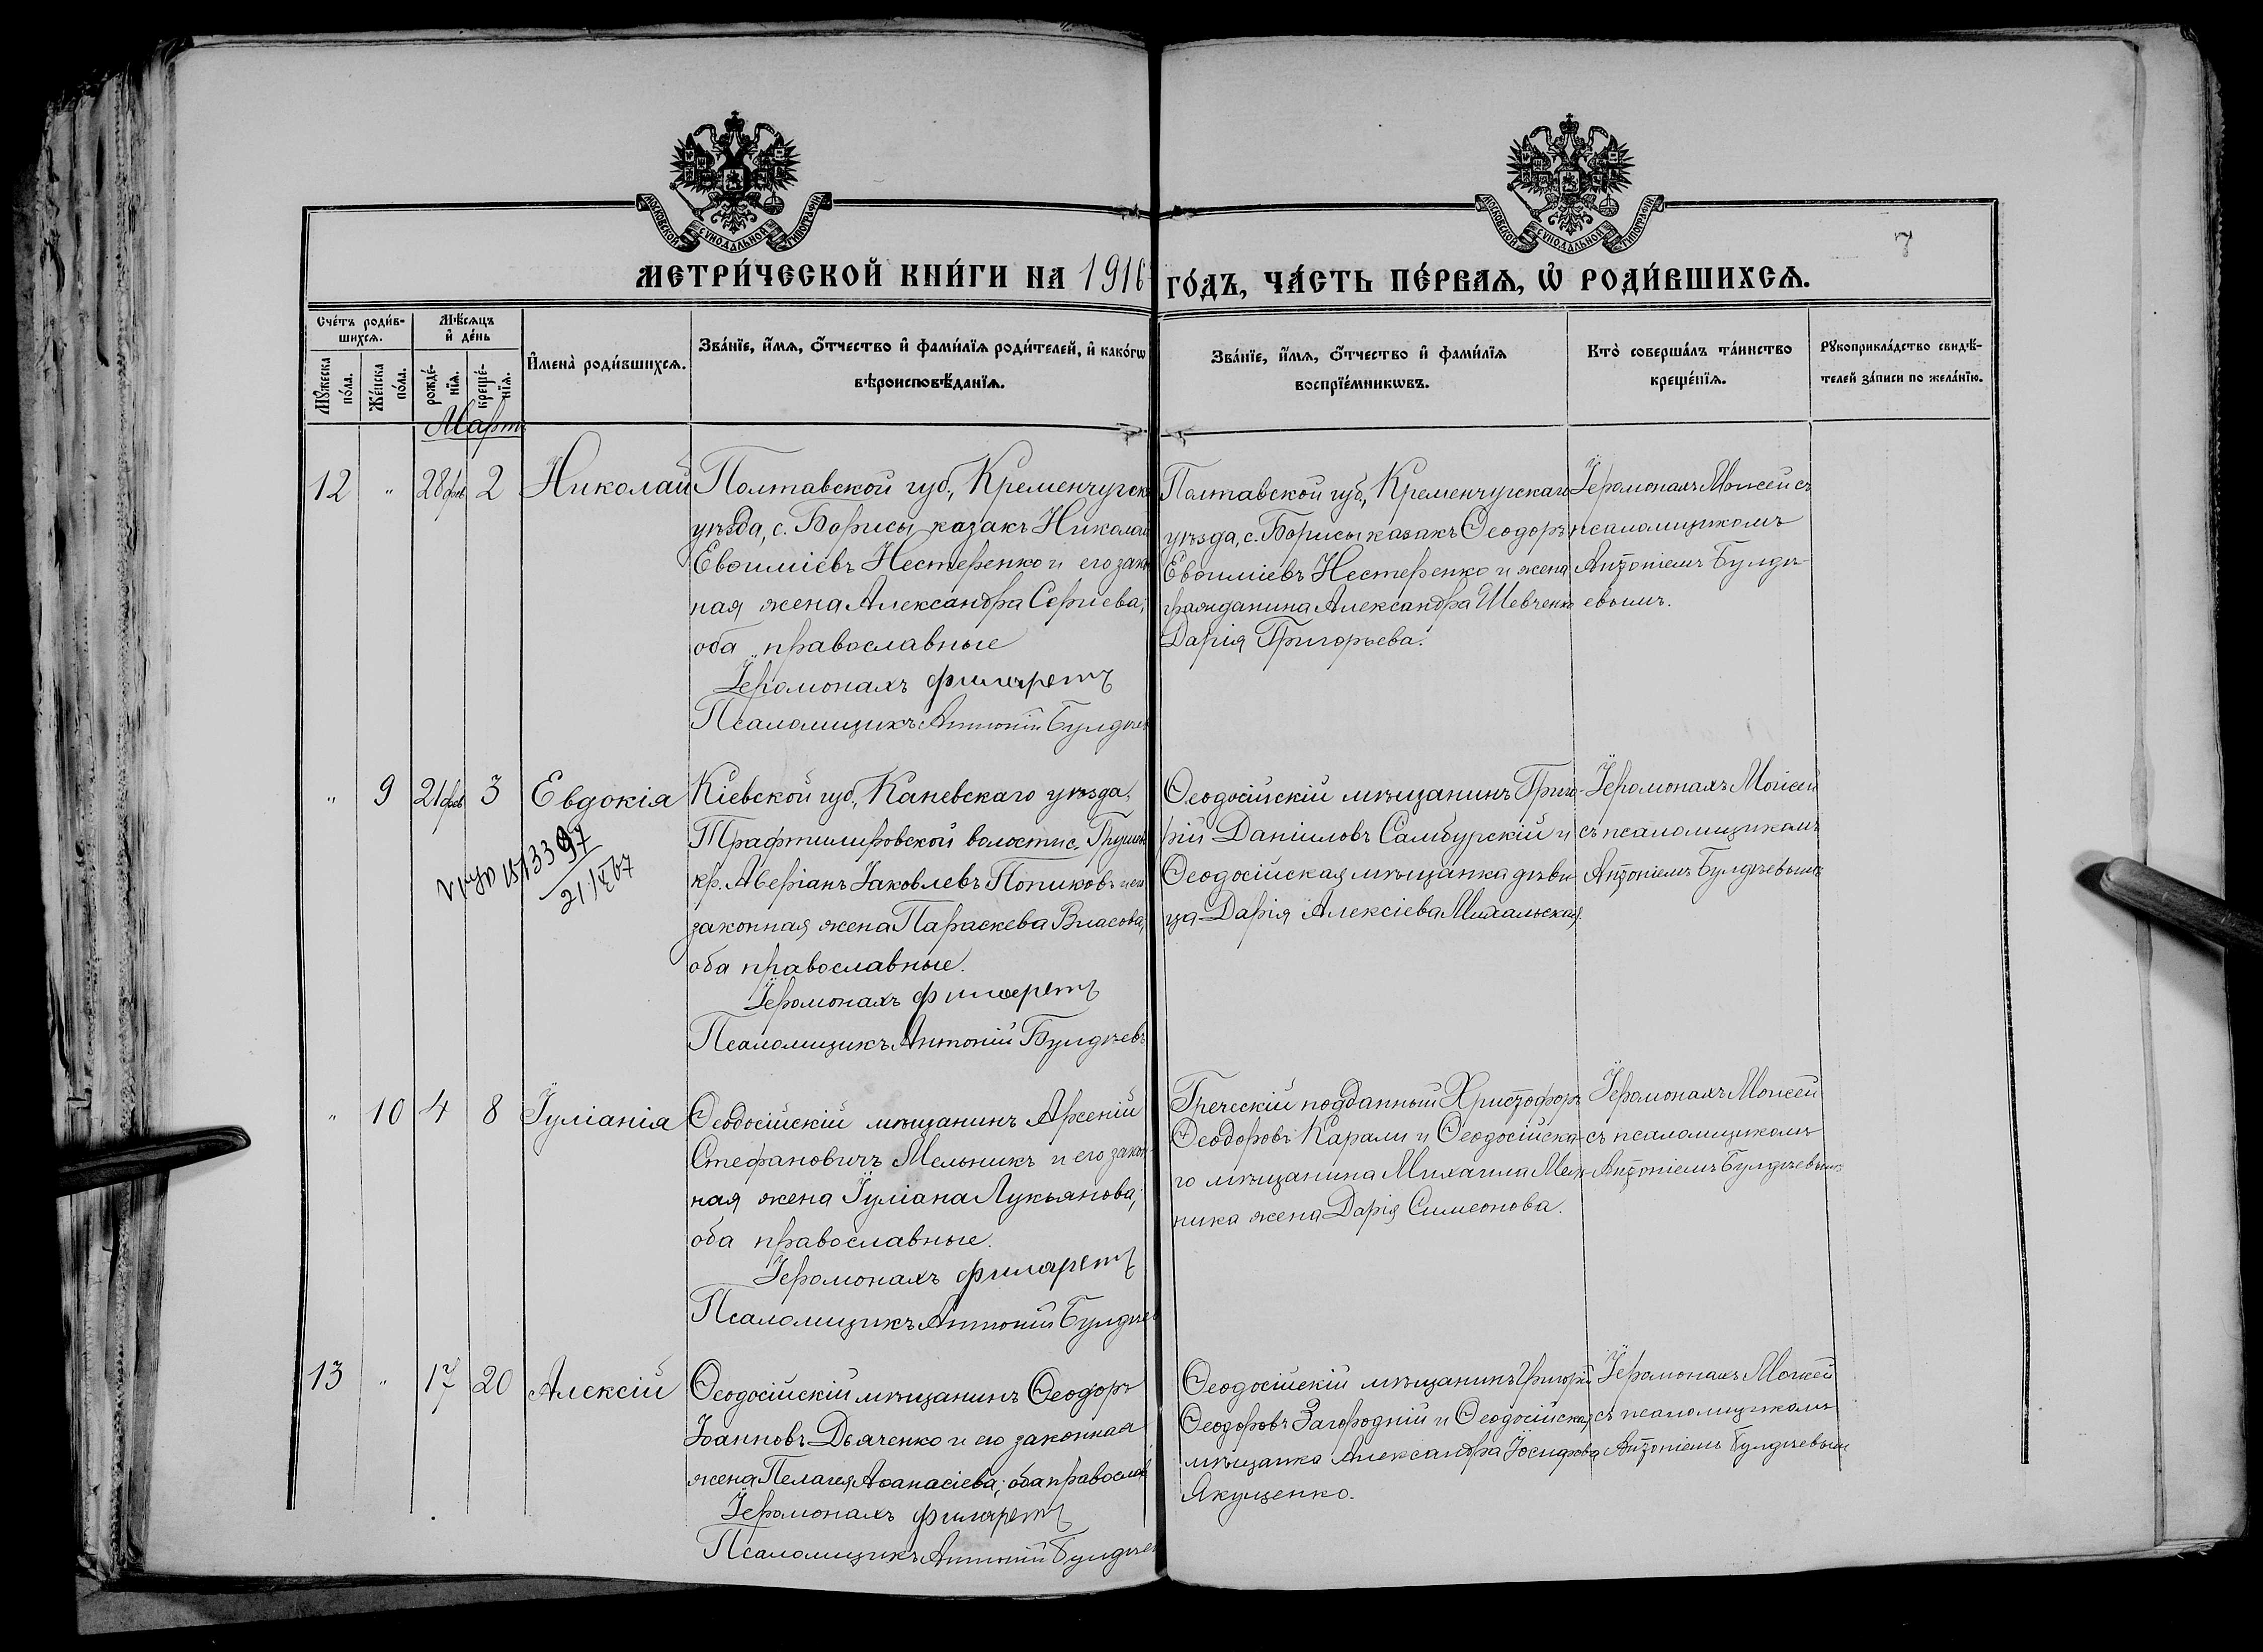 МОСКОВСКОЙ СѴНОДАЛЬНОЙ ТИПОГРАФІИ
МОСКОВСКОЙ СѴНОДАЛЬНОЙ ТИПОГРАФІИ
7
МЕТРИ́ЧЕСКОЙ КНИ́ГИ НА 1916 ГО́ДЪ, ЧА́СТЬ ПЕ́РВАѦ, Ѡ҆ РОДИ́ВШИХСѦ.
Сче́тъ роди́в-
шихсѧ.
Мꙋ́жеска по́ла.
Же́нска по́ла.
Мѣ́сѧцъ
и҆ де́нь
рожде́-
нїѧ.
креще́-
нїѧ.
И҆мена̀ роди́вшихсѧ.
Зва́нїе, и҆́мѧ, ѻ҆́тчество и҆ фами́лїѧ роди́телей, и҆ како́гѡ
вѣроисповѣ́данїѧ.
Зва́нїе, и҆́мѧ, ѻ҆́тчество и҆ фами́лїѧ
воспрїе́мникѡвъ.
Кто̀ соверша́лъ та́инство
креще́нїѧ.
Рꙋкоприкла́дство свидѣ́-
телей за́писи по жела́нїю.
Мартъ
12 " 28 фев. 2 Николай
Полтавской губ., Кременчугск.
уѣзда, с. Борисы казакъ Николай
Евѳиміевъ Нестеренко и его закон
ная жена Александра Сергіева;
оба православные
Іеромонахъ Филаретъ
Псаломщикъ Антоній Булдыев
Полтавской губ., Кременчугскаго
уѣзда, с. Борисы казакъ Ѳеодоръ
Евѳиміевъ Нестеренко и жена
гражданина Александра Шевченко
Дарія Григорьева.
Іеромонахъ Моисей съ
псаломщикомъ
Антоніемъ Булды-
евымъ.
" 9 21 фев. 3 Евдокія
21/X 67
Кіевской губ., Каневскаго уѣзда,
Трафтмировской волости с.
кр. Аверіанъ Іаковлевъ Попиковъ и его
законная жена Параскева Власова,
оба православные.
Іеромонахъ Филаретъ
Псаломщикъ Антоній Булдыевъ
Ѳеодосійскій мѣщанинъ Григо-
рій Даніиловъ Самбурскій и
Ѳеодосійская мѣщанка дѣви-
ца Дарія Алексіева Михальская
Іеромонахъ Моисей
съ псаломщикомъ
Антоніемъ Булдыевымъ
" 10 4 8 Іуліанія
Ѳеодосійскій мѣщанинъ Арсеній
Стефановичъ Мельникъ и его закон-
ная жена Іуліана Лукьянова;
оба православные.
Іеромонахъ Филаретъ
Псаломщикъ Антоній Булдыев
Греческій подданный Христофоръ
Ѳеодоровъ Карали и Ѳеодосійска-
го мѣщанина Михаила Мель-
ника жена Дарія Симеонова.
Іеромонахъ Моисей
съ псаломщикомъ
Антоніемъ Булдыевымъ
13 " 17 20 Алексій
Ѳеодосійскій мѣщанинъ Ѳеодоръ
Іоанновъ Дьяченко и его законная
жена Пелагея Аѳанасіева; оба православ
Іеромонахъ Филаретъ
Псаломщикъ Антоній Булдыев
Ѳеодосійскій мѣщанинъ Григорій
Ѳеодоровъ Загородній и Ѳеодосійская
мѣщанка Александра Іосифова
Якущенко.
Іеромонахъ Моисей
съ псаломщикомъ
Антоніемъ Булдыевымъ